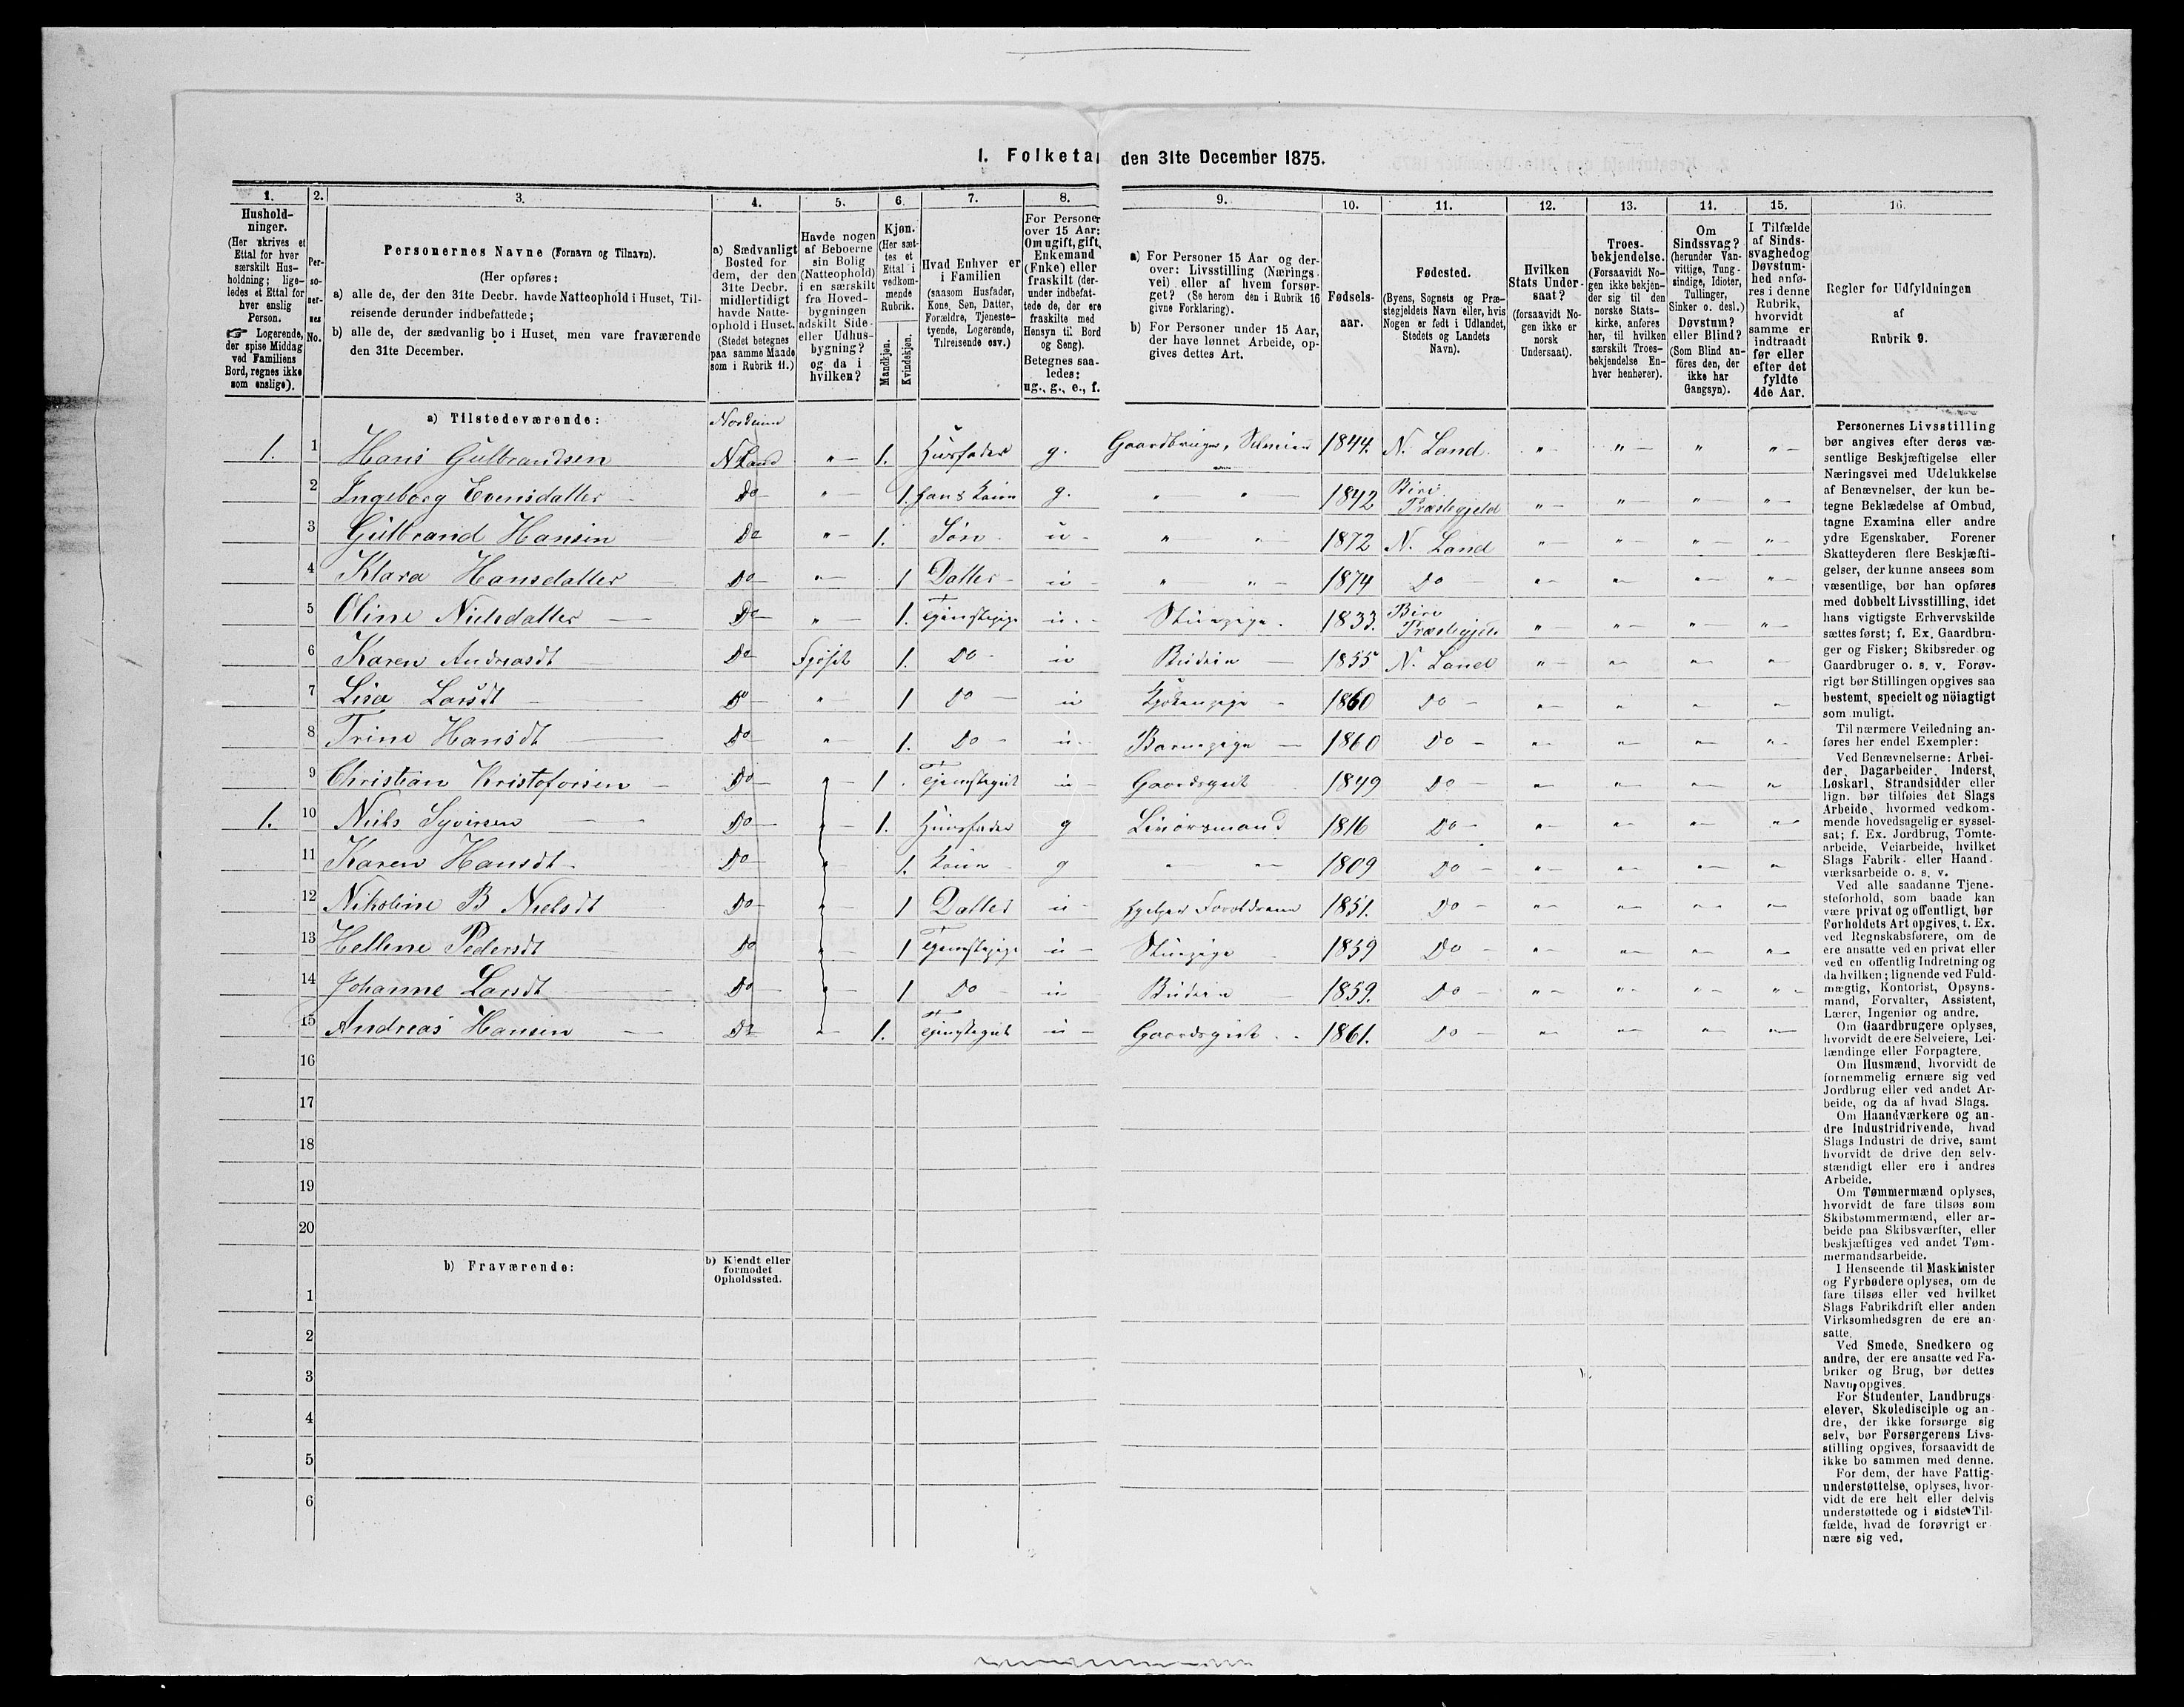 1. Folketa den 31te December 1875.
1. 2. 3. 4. 5. 6. 7. 8. 9. 10. 11. 12. 13. 14. 15. 16.
Hushold-
ninger.
(Her skrives et
Ettal for hver
særskilt Hus-
holdning; lige-
ledes et Ettal for
hver enslig
Person.
☞ Logerende,
der spise Middag
ved Familiens
Bord, regnes ikke
som enslige).
Per-
so-
ner-
nes
No.
Personernes Navne (Fornavn og Tilnavn).
(Her opføres:
a) alle de, der den 31te Decbr. havde Natteophold i Huset, Til-
reisende derunder indbefattede;
b) alle de, der sædvanlig bo i Huset, men vare fraværende
den 31te December.
a) Sædvanligt
Bosted for
dem, der den
31te Decbr.
midlertidigt
havde Natte-
ophold i Huset.
(Stedet betegnes
paa samme Maade
som i Rubrik 11.)
Havde nogen
af Beboerne
sin Bolig
(Natteophold)
i en særskilt
fra Hoved-
bygningen
adskilt Side-
eller Udhus-
bygning?
og da i
hvilken?
Kjøn.
(Her sæt-
tes et
Ettal i
vedkom-
mende
Rubrik.
Mandkjøn.
Kvindekjøn.
Hvad Enhver er
i Familien
(saasom Husfader,
Kone, Søn, Datter,
Forældre, Tjeneste-
tyende, Logerende,
Tilreisende osv.)
For Personer
over 15 Aar:
Om ugift, gift,
Enkemand
(Enke) eller
fraskilt (der-
under indbefat-
tede de, der ere
fraskilte med
Hensyn til Bord
og Seng).
Betegnes saa-
ledes:
ug., g., e., f.
a) For Personer 15 Aar og der-
over: Livsstilling (Nærings-
vei) eller af hvem forsør-
get? (Se herom den i Rubrik 16
givne Forklaring).
b) For Personer under 15 Aar,
der have lønnet Arbeide, op-
gives dettes Art.
Fødsels-
aar.
Fødested.
(Byens, Sognets og Præ-
stegjeldets Navn eller, hvis
Nogen er født i Udlandet,
Stedets og Landets
Navn).
Hvilken
Stats Under-
saat?
(forsaavidt No-
gen ikke er
norsk
Undersaat).
Troes-
bekjendelse.
(Forsaavidt No-
gen ikke bekjen-
der sig til den
norske Stats-
kirke, anføres
her, til hvilken
særskilt Troes-
bekjendelse En-
hver henhører).
Om
Sindssvag?
(herunder Van-
vittige, Tung-
sindige, Idioter,
Tullinger,
Sinker o. desl.)
Døvstum?
eller Blind?
(Som Blind an-
føres den, der
ikke har
Gangsyn).
I Tilfælde
af Sinds-
svaghed og
Døvstum-
hed anfø-
res i denne
Rubrik,
hvorvidt
samme er
indtraadt
før eller
efter det
fyldte
4de Aar.
Regler for Udfyldningen
af
Rubrik 9.
a) Tilstedeværende:
1. 1 Hans Gulbrandsen N Land " 1. Husfader g. Gaardbruger, Selveier 1844. N. Land. " " " "
2 Ingeborg Evensdatter Do " 1. hans Kone g. " " 1842 Biri Præstegjeld " " " "
3 Gulbrand Hansen Do " 1. Søn u " " 1872 N. Land " " " "
4 Klara Hansdatter Do " 1 Datter u " " 1874 Do " " " "
5 Oline Nielsdatter Do " 1. Tjenstepige u. Stuepige 1833. Biri Præstegjeld " " " "
6 Karen Andreasdt Do Fjøset 1. Do u Budeie 1855 N. Land " " " "
7 Lisa Larsdt Do " 1 Do u Kjøkenpige 1860 Do " " " "
8 Trine Hansdt Do " 1. Do u Barnepige 1860 Do " " " "
9 Christian Kristofersen Do " 1. Tjenstegut u Gaardsgut 1849 Do " " " "
1. 10 Niels Syversen Do " 1. Husfader g Livørsmand 1816 Do " " " "
11 Karen Hansdt Do " 1. Kone g " " 1809 Do " " " "
12 Nikoline B Nielsdt Do " 1 Datter u hjelper Foreldrene 1851. Do " " " "
13 Hellene Pedersdt Do " 1 Tjenstepige u Stuepige 1859 Do " " " "
14 Johanne Larsdt Do " 1 Do u Budeie 1859. Do " " " "
15 Andreas Hansen Do " 1. Tjenstegut u Gaardsgut 1861. Do " " " "
16
17
18
19
20
b) Fraværende:
b) Kjendt eller
formodet
Opholdssted.
1
2
3
4
5
6
Personernes Livsstilling
bør angives efter deres væ-
sentlige Beskjæftigelse eller
Næringsvei med Udelukkelse
af Benævnelser, der kun be-
tegne Beklædelse af Ombud,
tagne Examina eller andre
ydre Egenskaber. Forener
Skatteyderen flere Beskjæfti-
gelser, der kunne ansees som
væsentlige, bør han opføres
med dobbelt Livsstilling, idet
hans vigtigste Erhvervskilde
sættes først; f. Ex. Gaardbru-
ger og Fisker; Skibsreder og
Gaardbruger o. s. v. Forøv-
rigt bør Stillingen opgives saa
bestemt, specielt og nöiagtigt
som muligt.
Til nærmere Veiledning an-
føres her endel Exempler:
Ved Benævnelserne: Arbei-
der, Dagarbeider, Inderst,
Løskarl, Strandsidder eller
lign. bør tilføies det Slags
Arbeide, hvormed vedkom-
mende hovedsagelig er syssel-
sat; f. Ex. Jordbrug, Tomte-
arbeide, Veiarbeide, hvilket
Slags Fabrik- eller Haand-
værksarbeide o. s. v.
Ved alle saadanne Tjene-
steforhold, som baade kan
være privat og offentligt, bør
Forholdets Art opgives, t. Ex.
ved Regnskabsførere, om de
ere ansatte ved en privat eller
ved en offentlig Indretning og
da hvilken; lignende ved Fuld-
mægtig, Kontorist, Opsyns-
mand, Forvalter, Assistent,
Lærer, Ingeniør og andre.
Om Gaardbrugere oplyses,
hvorvidt de ere Selveiere, Lei-
lændinge eller Forpagtere.
Om Husmænd, hvorvidt de
fornemmelig ernære sig ved
Jordbrug eller ved andet Ar-
beide, og da af hvad Slags.
Om Haandværkere og an-
dre Industridrivende, hvad
Slags Industri de drive, samt
hvorvidt de drive den selv-
stændigt eller ere i andres
Arbeide.
Om Tømmermænd oplyses,
hvorvidt de fare tilsøs som
Skibstømmermænd, eller ar-
beide paa Skibsværfter, eller
beskjæftiges ved andet Tøm-
mermandsarbeide.
I Henseende til Maskinister
og Fyrbødere oplyses, om de
fare tilsøs eller ved hvilket
Slags Fabrikdrift eller anden
Virksomhedsgren de ere an-
satte.
Ved Smede, Snedkere og
andre, der ere ansatte ved Fa-
briker og Brug, bør dettes
Navn opgives.
For Studenter, Landbrugs-
elever, Skoledisciple og an-
dre, der ikke forsørge sig
selv, bør Forsørgerens Livs-
stilling opgives, forsaavidt de
ikke bo sammen med denne.
For dem, der have Fattig-
understøttelse, oplyses, hvor-
vidt de ere helt eller delvis
understøttede og i sidste Til-
fælde, hvad de forøvrigt er-
nære sig ved.